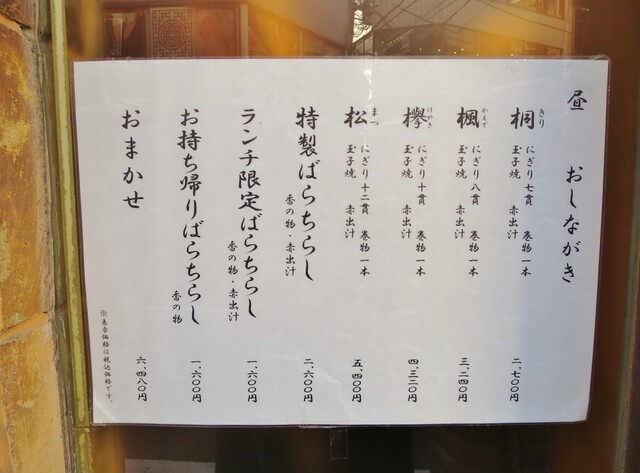 昼 おしながき
桐 きり にぎり七貫 巻物一本
玉子焼 赤出汁 二、七〇〇円
楓 かえで にぎり八貫 巻物一本
玉子焼 赤出汁 三、二四〇円
欅 けやき にぎり十貫 巻物一本
玉子焼 赤出汁 四、三二〇円
松 まつ にぎり十二貫 巻物一本
玉子焼 赤出汁 五、四〇〇円
特製ばらちらし
香の物・赤出汁 二、六〇〇円
ランチ限定ばらちらし
香の物・赤出汁 一、六〇〇円
お持ち帰りばらちらし
香の物 一、六〇〇円
おまかせ 六、四八〇円
※表示価格は税込価格です。